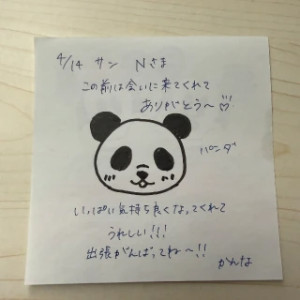 4/14 サン Nさま
この前は会いに来てくれて
ありがとう〜♡
パンダ
いっぱい気持ち良くなってくれて
うれしい!!!
出張がんばってね〜!!
かんな